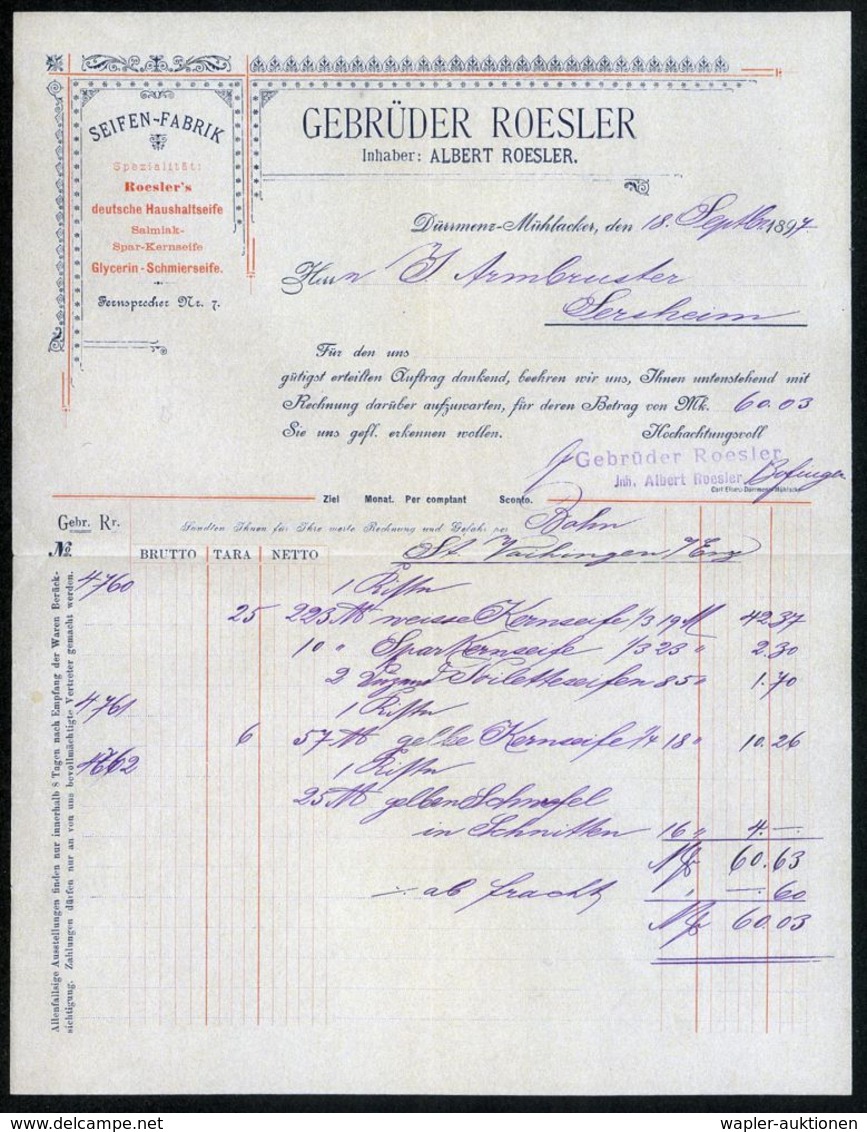 SEIFEN-FABRIK
Spezialität:
Roesler's
deutsche Haushaltseife
Salmiak-
Spar-Kernseife
Glycerin-Schmierseife.
Fernsprecher Nr. 7.
GEBRÜDER ROESLER
Inhaber: ALBERT ROESLER.
Dürrmenz-Mühlacker, den 18. Septbr. 1897.
Herrn J. Armbruster
Sersheim
Für den uns
gütigst erteilten Auftrag dankend, beehren wir uns, Ihnen untenstehend mit
Rechnung darüber aufzuwarten, für deren Betrag von Mk. 60.03
Sie uns gefl. erkennen wollen. Hochachtungsvoll
Gebrüder Roesler
Inh. Albert Roesler Bofinger
Ziel Monat. Per comptant Sconto.
Gebr. Rr. Sandten Ihnen für Ihre werte Rechnung und Gefahr per Bahn
No. BRUTTO TARA NETTO St. Vaihingen /Enz
4760 1 Kiste
25 223 ℔ weisse Kernseife 1/3 19 M 42.37
10 " Sparkernseife 1/3 23 " 2.30
2 Duzend Toiletteseifen 85 " 1.70
4761 1 Kiste
6 57 ℔ gelbe Kernseife 1/4 18 " 10.26
4762 1 Kiste
25 ℔ gelben Schwefel
in Schnitten 16 " 4.—
M 60.63
ab Fracht " —.60
M 60.03
Allenfallsige Ausstellungen finden nur innerhalb 8 Tagen nach Empfang der Waren Berück-
sichtigung. Zahlungen dürfen nur an von uns bevollmächtigte Vertreter gemacht werden.
wapler-auktionen